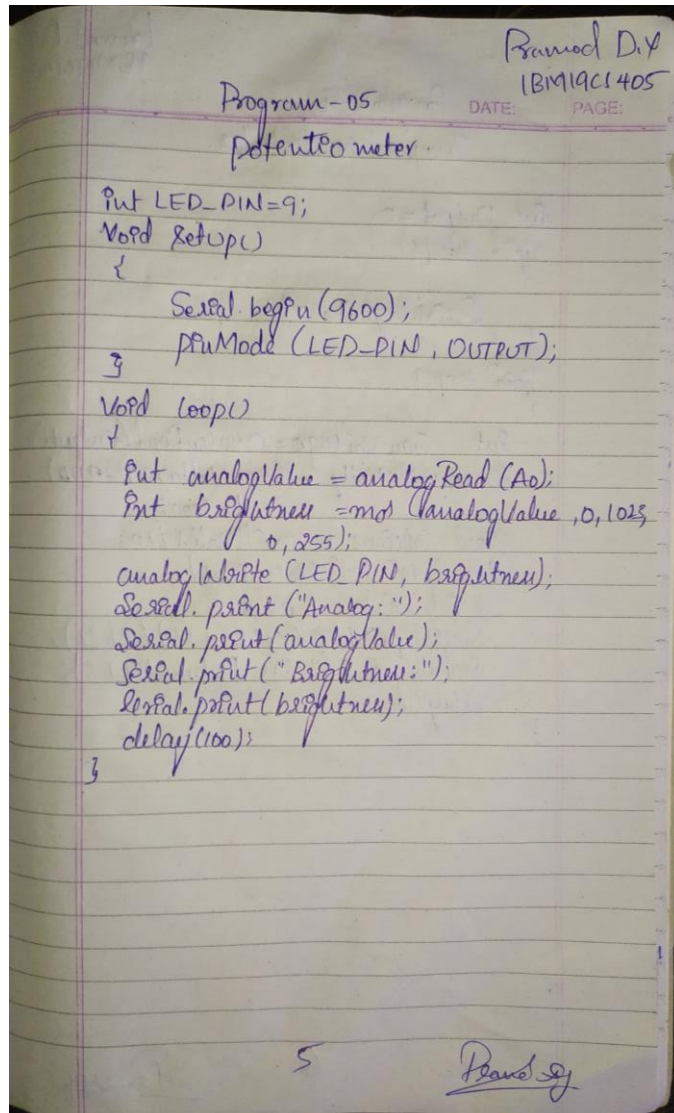 Pramod D.Y
1BM19CS405
Program-05
DATE: PAGE:
Potentiometer.
int LED_PIN=9;
Void Setup()
{
Serial.begin(9600);
pinMode (LED_PIN, OUTPUT);
}
Void loop()
{
int analogValue = analogRead (A0);
int brightness = map (analogValue, 0, 1023,
0, 255);
analogWrite (LED_PIN, brightness);
Serial.print ("Analog: ");
Serial.print(analogValue);
Serial.print(" Brightness:");
Serial.print(brightness);
delay(100);
}
5